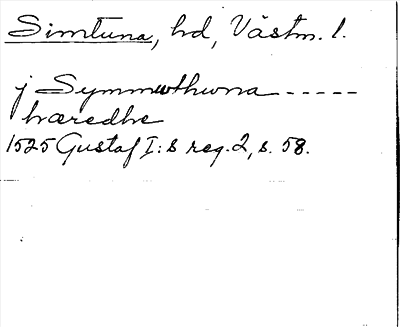 Simtuna, hd, Västm. l.
j Symmwthwna -----
hæredhe
1525 Gustaf I:s reg. 2, s. 58.